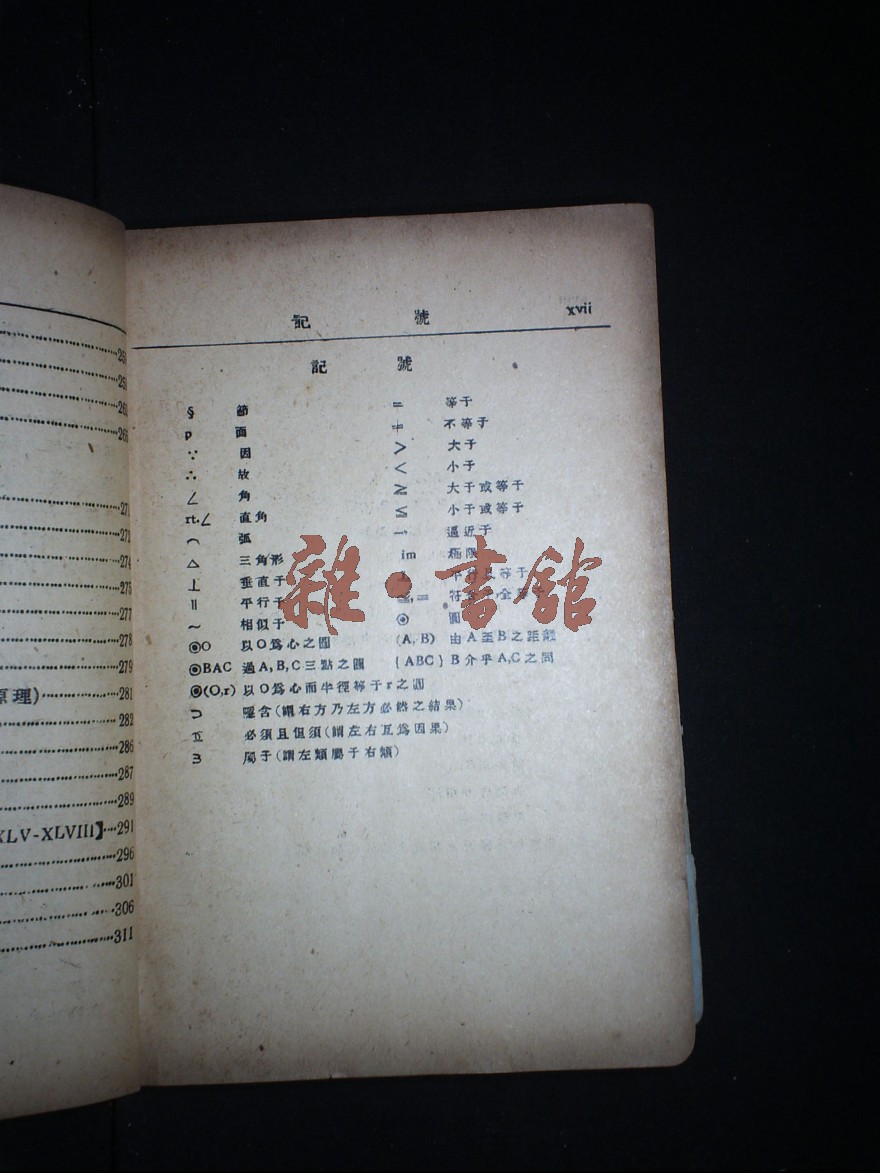 251
261
266
271
271
274
275
277
278
279
原理) 281
282
286
287
289
XLV-XLVIII】 291
296
301
306
311
記 號 xvii
記 號
§ 節 = 等于
p 面 ≠ 不等于
∵ 因 > 大于
∴ 故 < 小于
∠ 角 ≧ 大于或等于
rt.∠ 直角 ≦ 小于或等于
⌒ 弧 逼近于
△ 三角形 im 極限
⊥ 垂直于 等于
∥ 平行于
~ 相似于 ⊙ 圓
⊙O 以O爲心之圓 (A, B) 由A至B之距離
⊙BAC 過A,B,C三點之圓 {ABC} B介乎A,C之間
⊙(O,r) 以O爲心而半徑等于r之圓
⊃ 隱含(謂右方乃左方必然之結果)
必須且但須(謂左右互爲因果)
∃ 屬于(謂左類屬于右類)
雜·書館